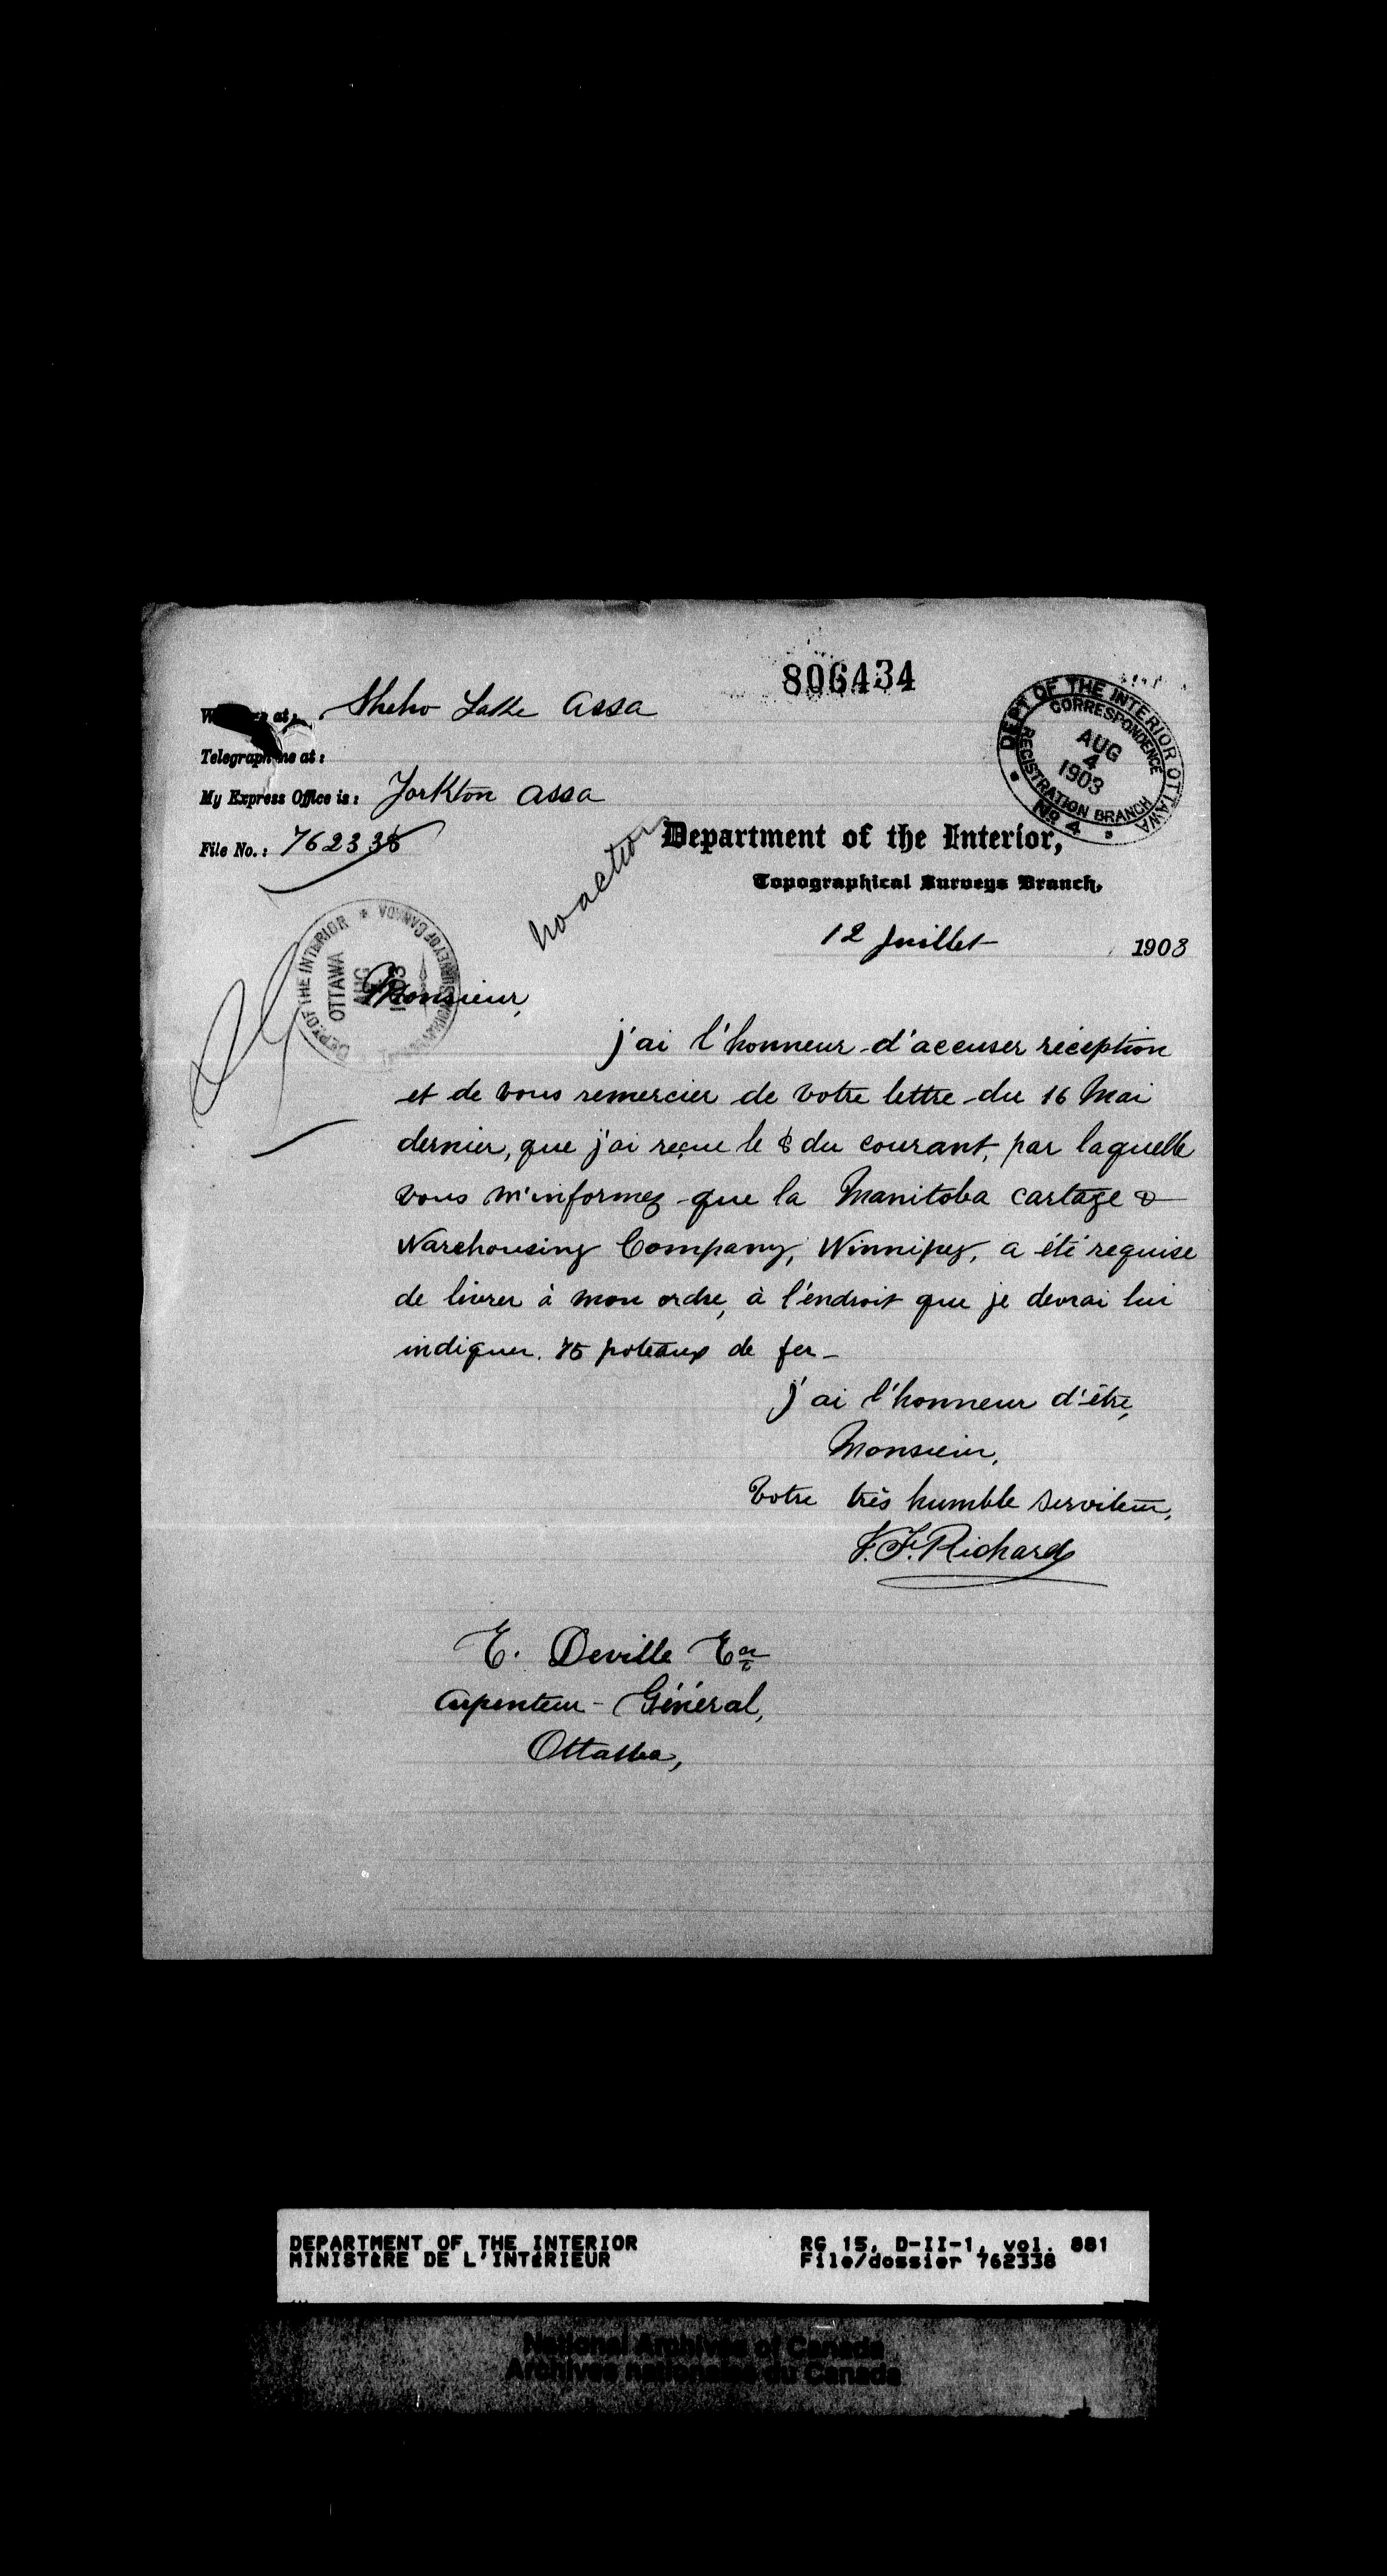 806434
Sheho Lake Assa
Telegraph me at:
My Express Office is: Yorkton Assa
File No.: 762338
DEPT OF THE INTERIOR OTTAWA
CORRESPONDENCE
AUG
4
1903
REGISTRATION BRANCH
No. 4
no action
Department of the Interior,
Topographical Surveys Branch,
12 Juillet 1903
DEPT. OF THE INTERIOR
OTTAWA
AUG
Monsieur,
j'ai l'honneur d'accuser réception
et de vous remercier de votre lettre du 16 Mai
dernier, que j'ai reçue le 8 du courant, par laquelle
vous m'informez que la Manitoba cartage &
Warehousing Company, Winnipeg, a été requise
de livrer à mon ordre, à l'endroit que je devrai lui
indiquer. 75 poteaux de fer_
j'ai l'honneur d'être,
Monsieur,
Votre très humble serviteur,
J. F. Richard
E. Deville Ecr
Arpenteur-Général,
Ottawa,
DEPARTMENT OF THE INTERIOR RG 15, D-II-1, vol. 881
MINISTÈRE DE L'INTÉRIEUR File/dossier 762338
National Archives of Canada
Archives nationales du Canada